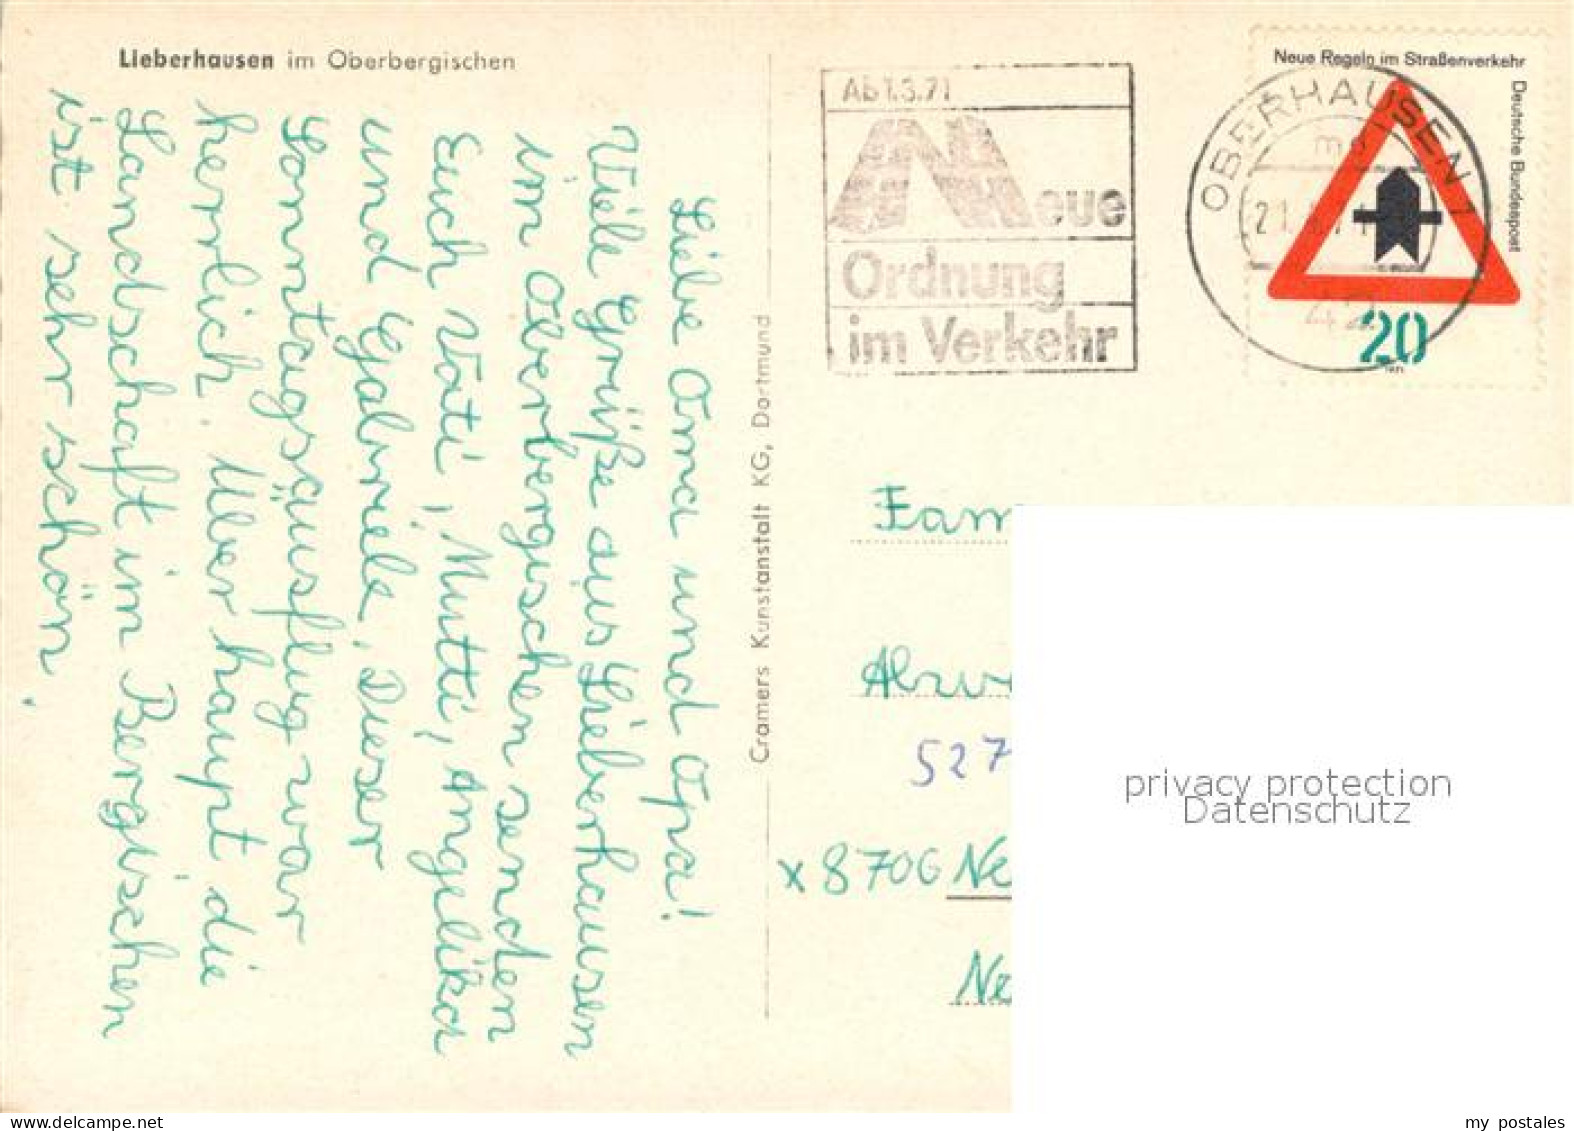 Lieberhausen im Oberbergischen
Liebe Oma und Opa!
Viele Grüße aus Lieberhausen
im Oberbergischen senden
Euch Vati, Mutti, Angelika
und Gabriele. Dieser
Sonntagsausflug war
herrlich. Über haupt die
Landschaft im Bergischen
ist sehr schön.
Cramers Kunstanstalt KG, Dortmund
Ab 1.3.71
Neue
Ordnung
im Verkehr
OBERHAUSEN 1
Neue Regeln im Straßenverkehr
Deutsche Bundespost
20
Fam
Abzw
527
x 8706 Ne
Ne
privacy protection
Datenschutz
my postales